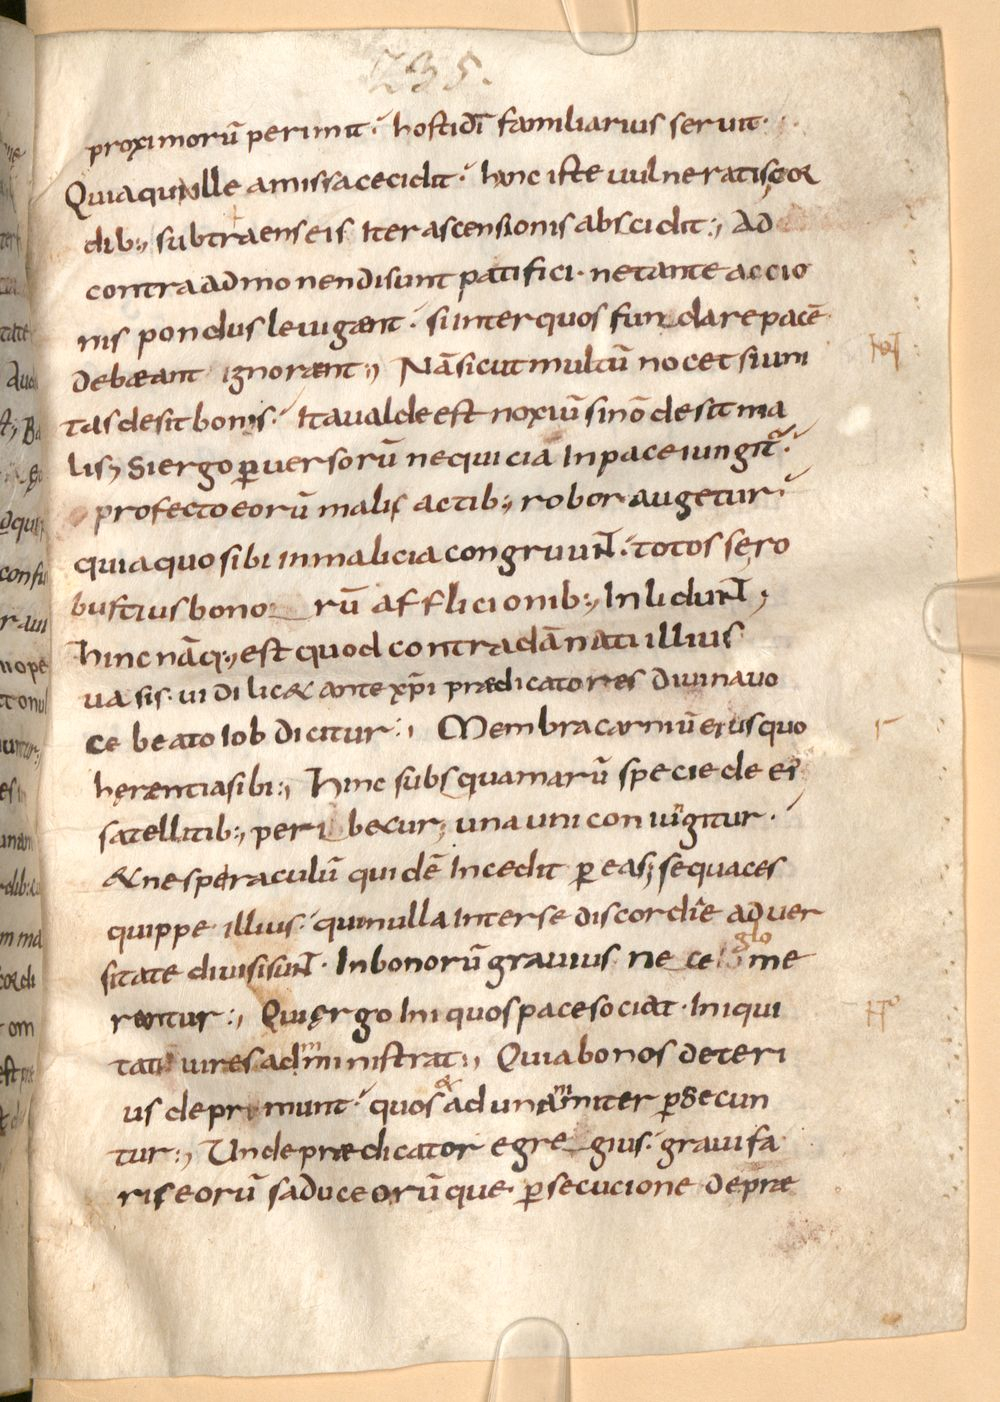 235.
proximorū perimit; hosti dī familiarius seruit.
Quia qui ille amissa cecidit; hinc iste uulneratis cor
dib:, subtraens eis iter ascensionis abscidit:, Ad
contra admonendi sunt patifici. ne tante accio
nis pondus leuigænt. si inter quos fundare pacē
debæant ignorænt:, Nā sicut multū nocet si uni
tas desit bonis. Ita ualde est noxiū si nō desit ma
lis; Si ergo ꝑuersorū nequicia in pace iungit̄.
profecto eorū malis actib:, robor augetur.
quia quo sibi in malicia congruunt. totos se ro
bustius bonorū afflicionib:, Inlidunt;
hinc nāq:, est quod contra dānati illius
uasis. uidilic& ante xp̄i prædicatores diuina uo
ce beato Iob dicitur:, Membra carniū eius quo
herentia sibi:, Hinc sub squamarū specie de ei
satellitib:, peribecur; una uni coniūgitur.
& ne speraculū quidē Incedit ꝑ eas; sequaces
quippe illius. qui nulla Inter se discordiē aduer
sitate diuisi sunt. In bonorū grauius nece glome
rantur:, Qui ergo Iniquos pace sociat. Iniqui
tati uires administrat:, Quia bonos deteri
us depremunt. quos & ad unāmiter ꝑsecun
tur:, Unde prædicator egregius. graui fa
riseorū saduceorūque ꝑsecucione depræ